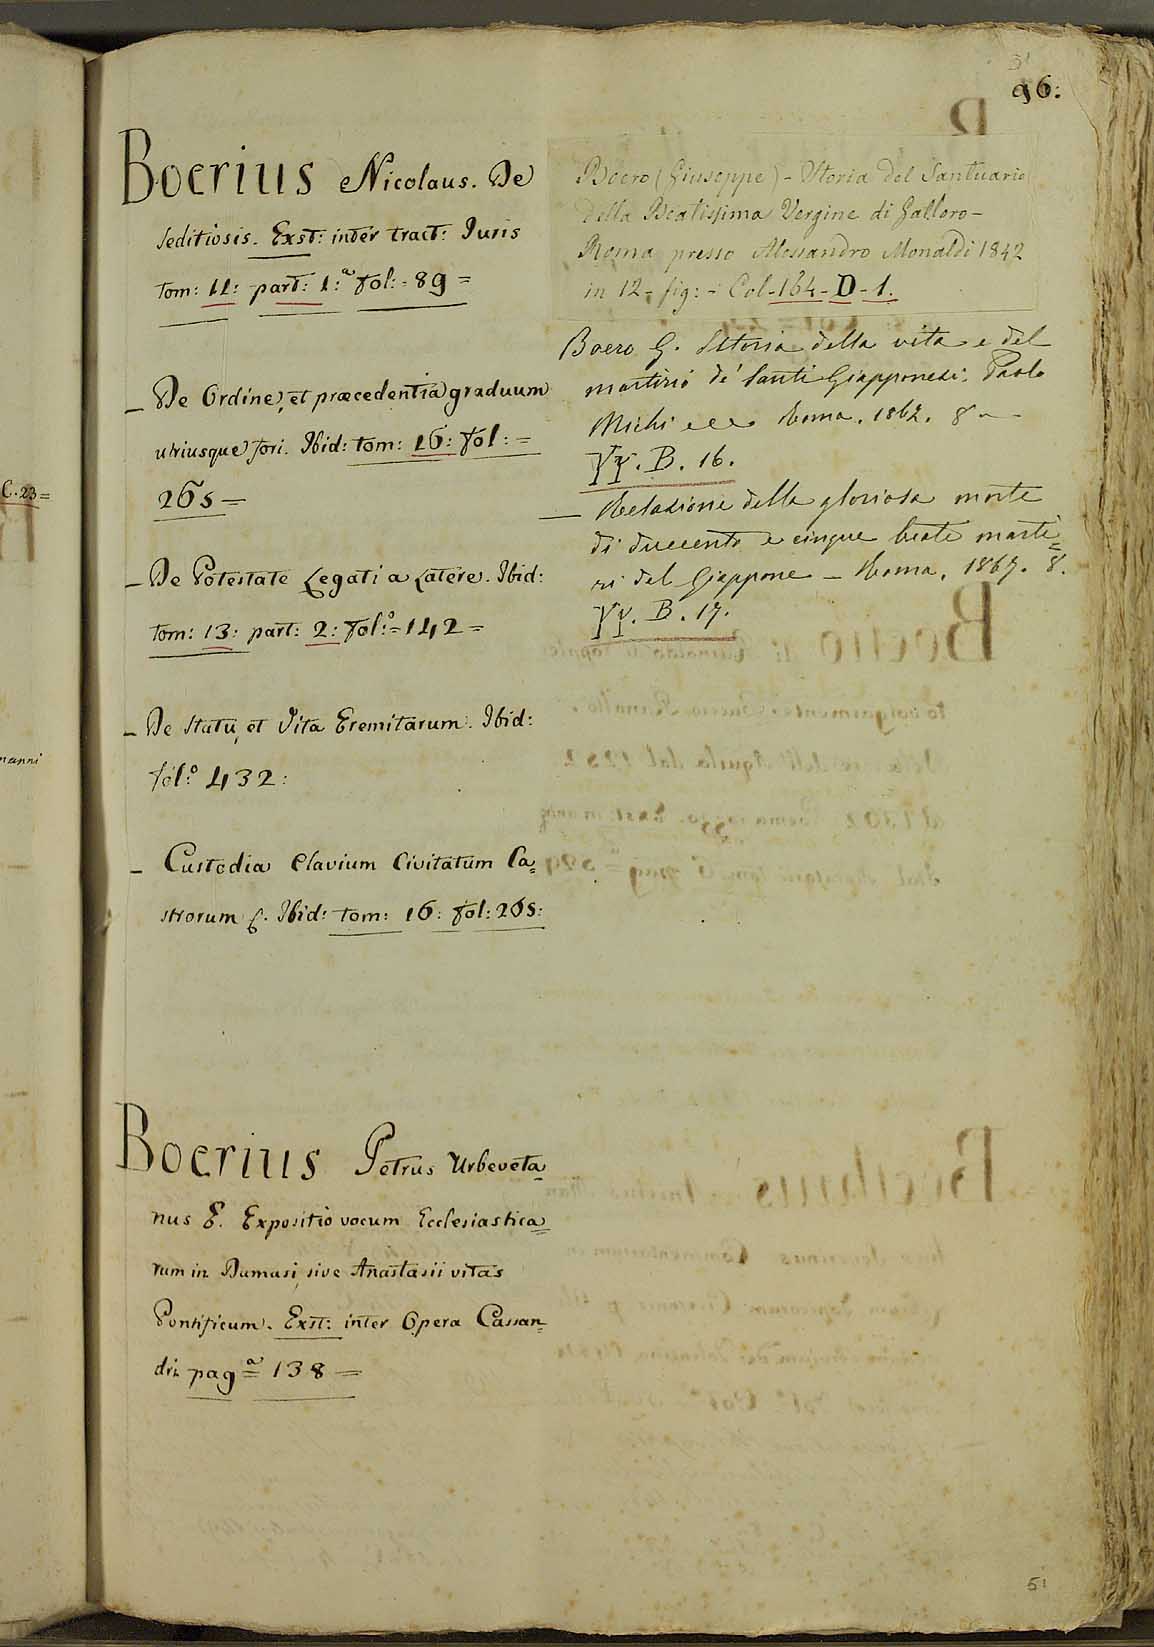 96:
Boerius Nicolaus. De
seditiosis. Exst: inter tract: Juris
tom: 11: part: 1:ª fol: 89 =
_ De Ordine, et præcedentia graduum
utriusque fori. Ibid: tom: 16: fol: =
265 =
_ De Potestate Legati a Latere. Ibid:
tom: 13: part: 2: fol:º = 142 =
_ De Statu, et Vita Eremitarum. Ibid:
fol:º 432:
_ Custodia Clavium Civitatum Ca=
strorum &. Ibid: tom: 16: fol: 265:
Boerius Petrus Urbeveta=
nus E. Expositio vocum Ecclesiastica=
rum in Damasi, sive Anastasii vitas
Pontificum. Exst: inter Opera Cassan=
dri pagª = 138 =
Boero (Giuseppe) - Storia del Santuario
della Beatissima Vergine di Galloro -
Roma presso Alessandro Monaldi 1842
in 12 - fig: - Col - 164 - D - 1.
Boero G. Istoria della vita e del
martirio de' Santi Giapponesi. Paolo
Michi ecc Roma. 1862. 8 -
YY. B. 16.
_ Relazione della gloriosa morte
di duecento e cinque beati marti=
ri del Giappone _ Roma. 1867. 8.
YY. B. 17.
C. 23 =
manni
51